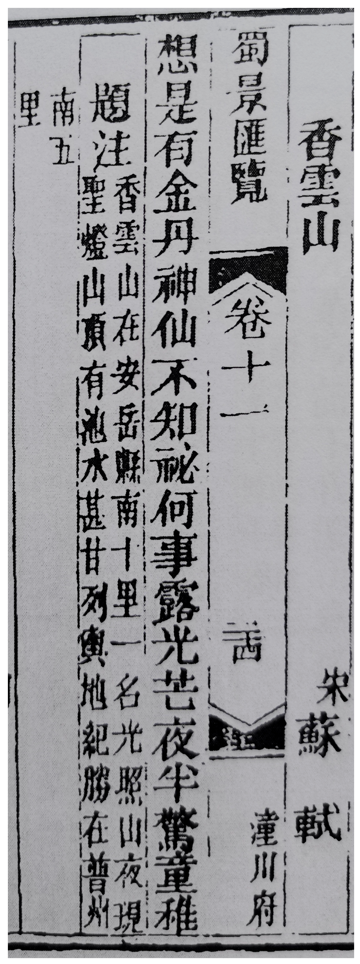 香雲山 宋 蘇軾
蜀景匯覽 卷十一 潼川府
想是有金丹神仙不知祕何事露光芒夜半驚童稚
題注 香雲山在安岳縣南十里一名光照山夜現
聖燈山頂有池水甚甘列輿地紀勝在普州
南五
里